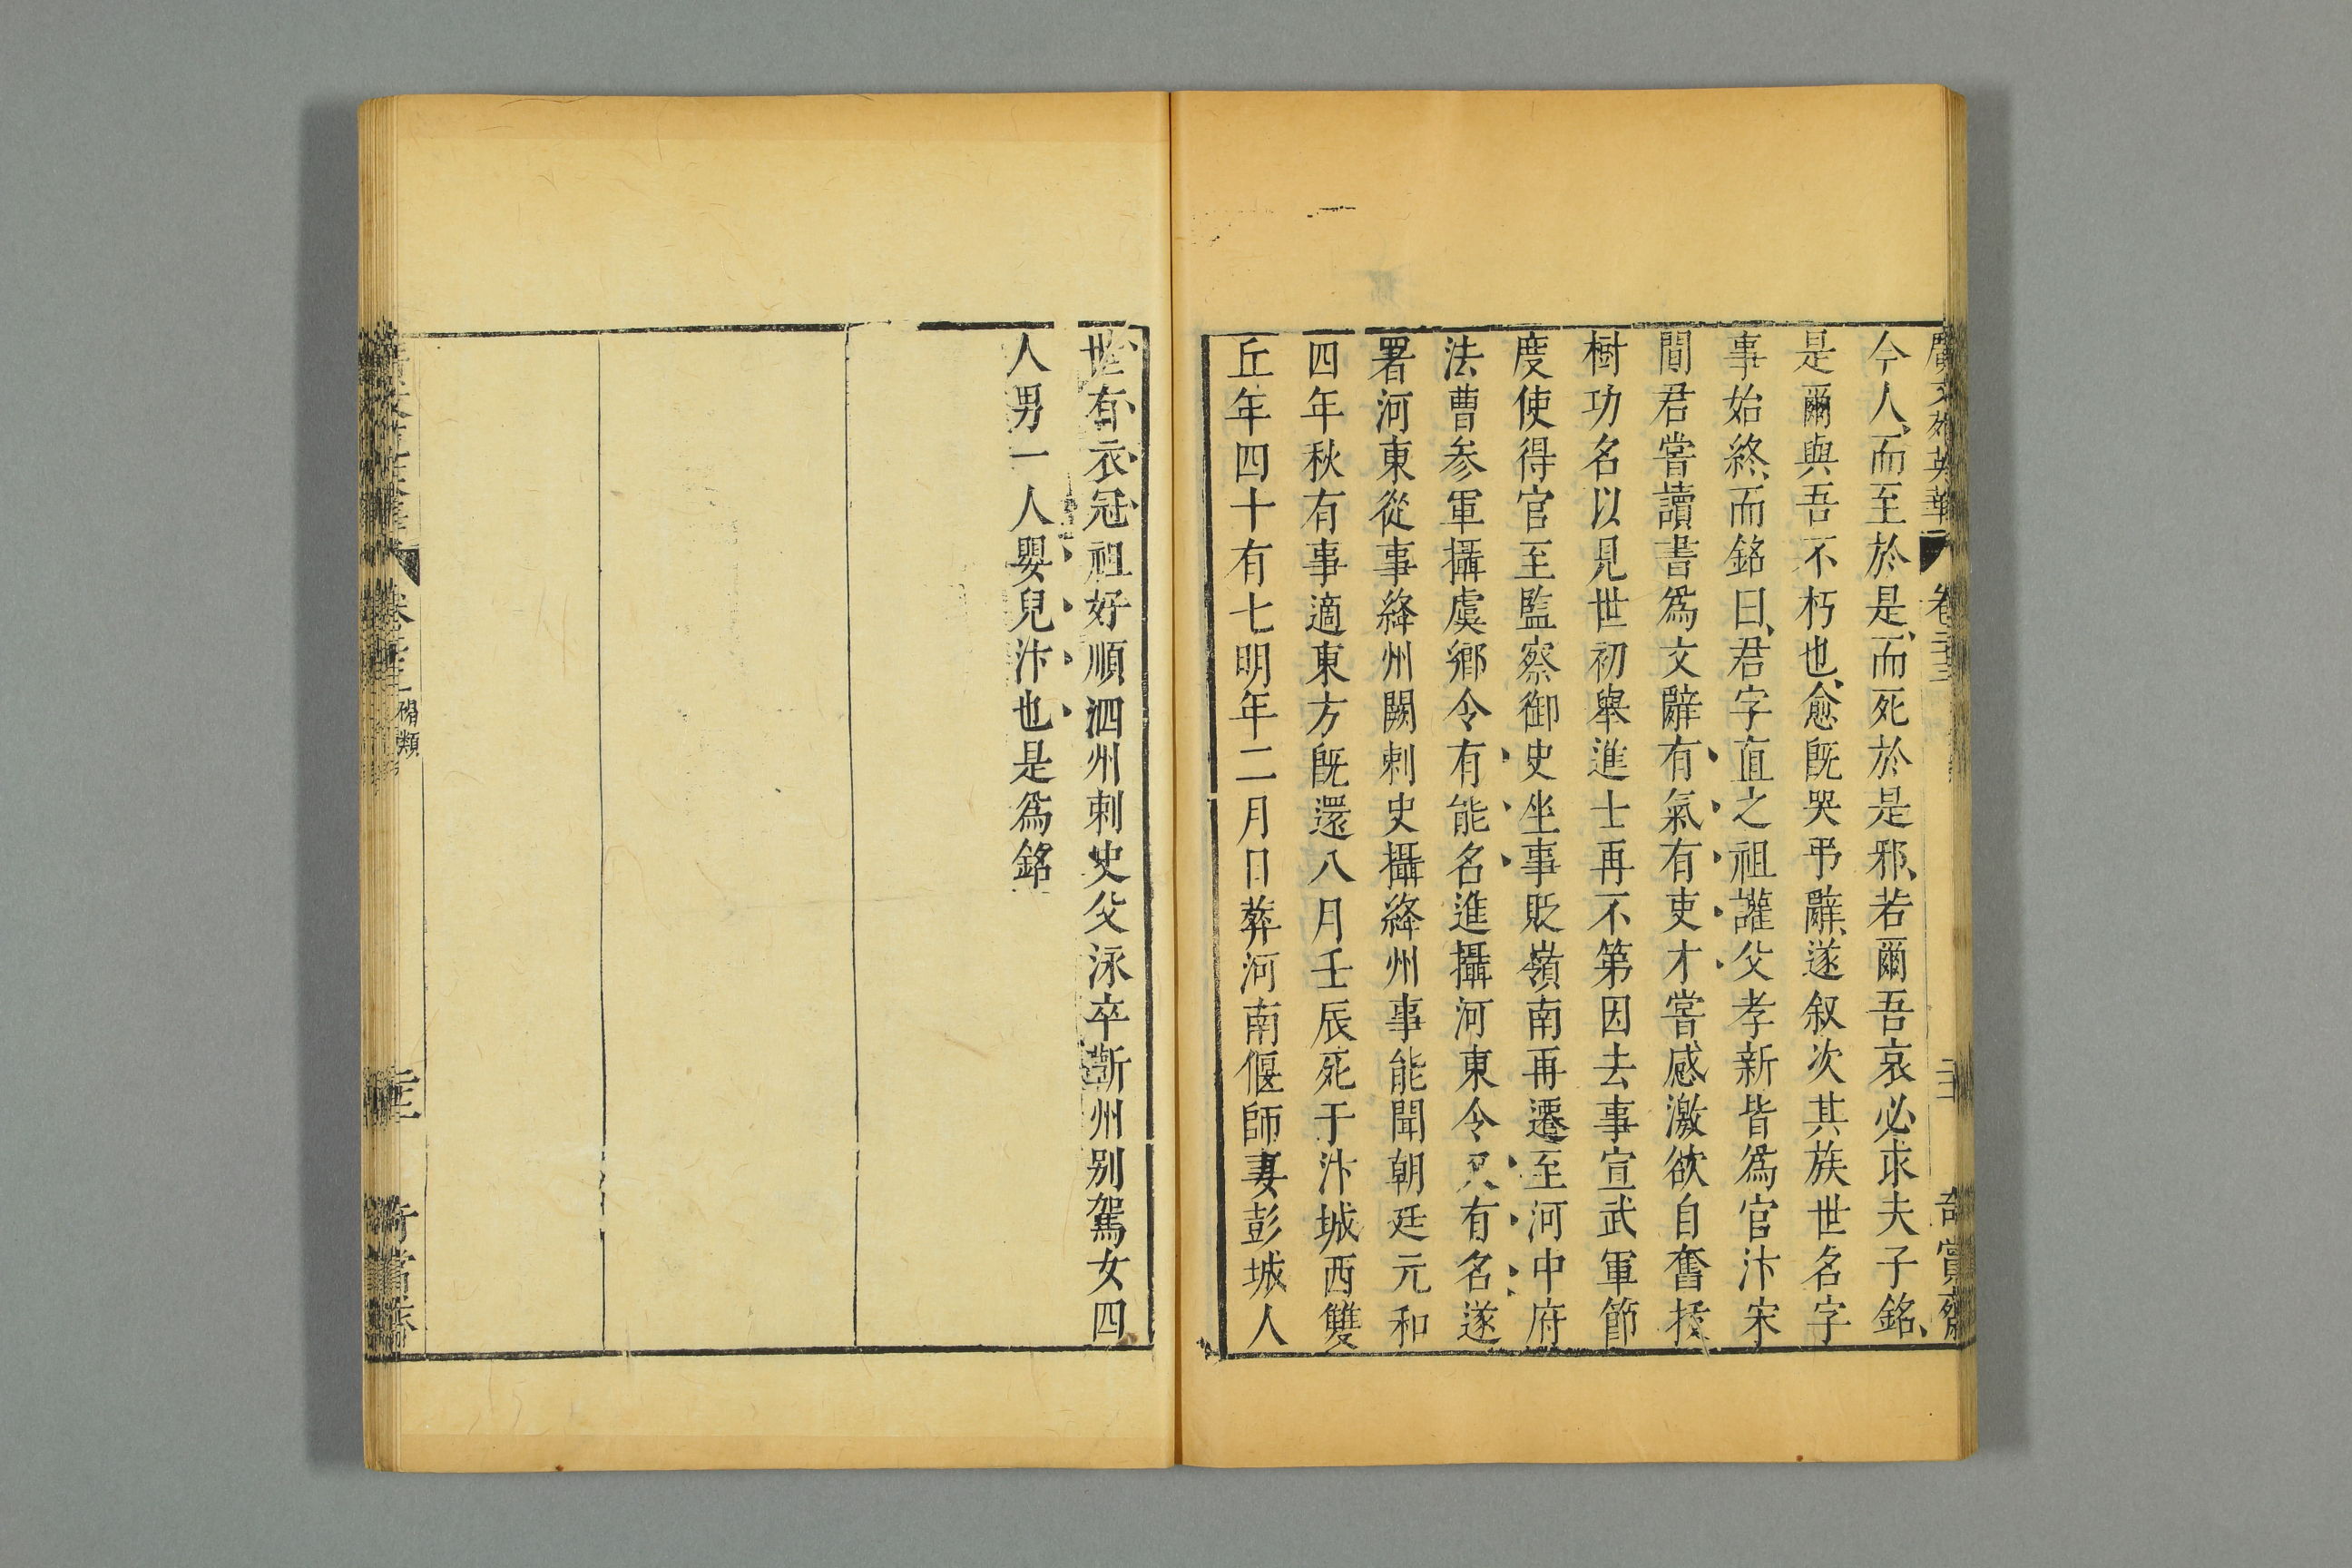 廣文苑英華 卷二十三 二十二 奇賞齋
今人、而至於是、而死於是邪、若爾吾哀必求夫子銘、
是爾與吾不朽也、愈旣哭弔辭、遂叙次其族世名字
事始終、而銘曰、君字直之祖讙父孝新皆爲官汴宋
間君嘗讀書爲文辭有氣有吏才嘗感激欲自奮拔
樹功名以見世初舉進士再不第因去事宣武軍節
度使得官至監察御史坐事貶嶺南再遷至河中府
法曹參軍攝虞鄉令有能名進攝河東令又有名遂
署河東從事絳州闕刺史攝絳州事能聞朝廷元和
四年秋有事適東方旣還八月壬辰死于汴城西雙
丘年四十有七明年二月日葬河南偃師妻彭城人
世有衣冠祖好順泗州刺史父泳卒蘄州別駕女四
人男一人嬰兒汴也是爲銘
碑類